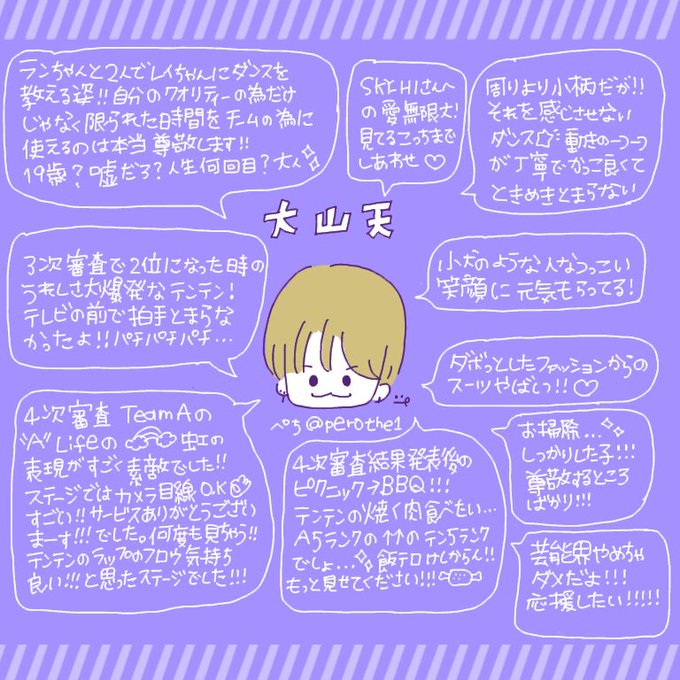 ランちゃんと2人でレイちゃんにダンスを
教える姿!!自分のクオリティーの為だけ
じゃなく限られた時間をチームの為に
使えるのは本当尊敬します!!
19歳?嘘だろ?人生何回目?大人
SKY-HIさんへ
の愛無限大!
見てるこっちまで
しあわせ♡
周りより小柄だが!!
それを感じさせない
ダンス 動きの一つ一つ
が丁寧でかっこ良くて
ときめきとまらない
大山天
3次審査で2位になった時の
うれしさ大爆発なテンテン!
テレビの前で拍手とまらな
かったよ!!パチパチパチ…
小犬のような人なつっこい
笑顔に元気もらってる!
ダボっとしたファッションからの
スーツやばいっ!!♡
ぺち@perothe1
4次審査 TeamAの
"A"Lifeの 虹の
表現がすごく素敵でした!!
ステージではカメラ目線OK
すごい!!サービスありがとうござい
まーす!!!でした。何度も見ちゃう!!
テンテンのラップのフロウ気持ち
良い!!!と思ったステージでした!!!
4次審査結果発表後の
ピクニック→BBQ!!!
テンテンの焼く肉食べたい…
A5ランクの↑↑のテン5ランク
でしょ…飯テロけしからん!!
もっと見せてください!!!
お掃除…
しっかりした子!!!
尊敬するところ
ばかり!!!
芸能界やめちゃ
ダメだよ!!!
応援したい!!!!!